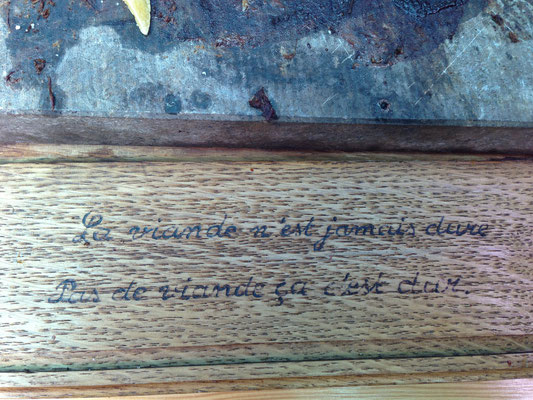 La viande n'est jamais dure
Pas de viande ça c'est dur.